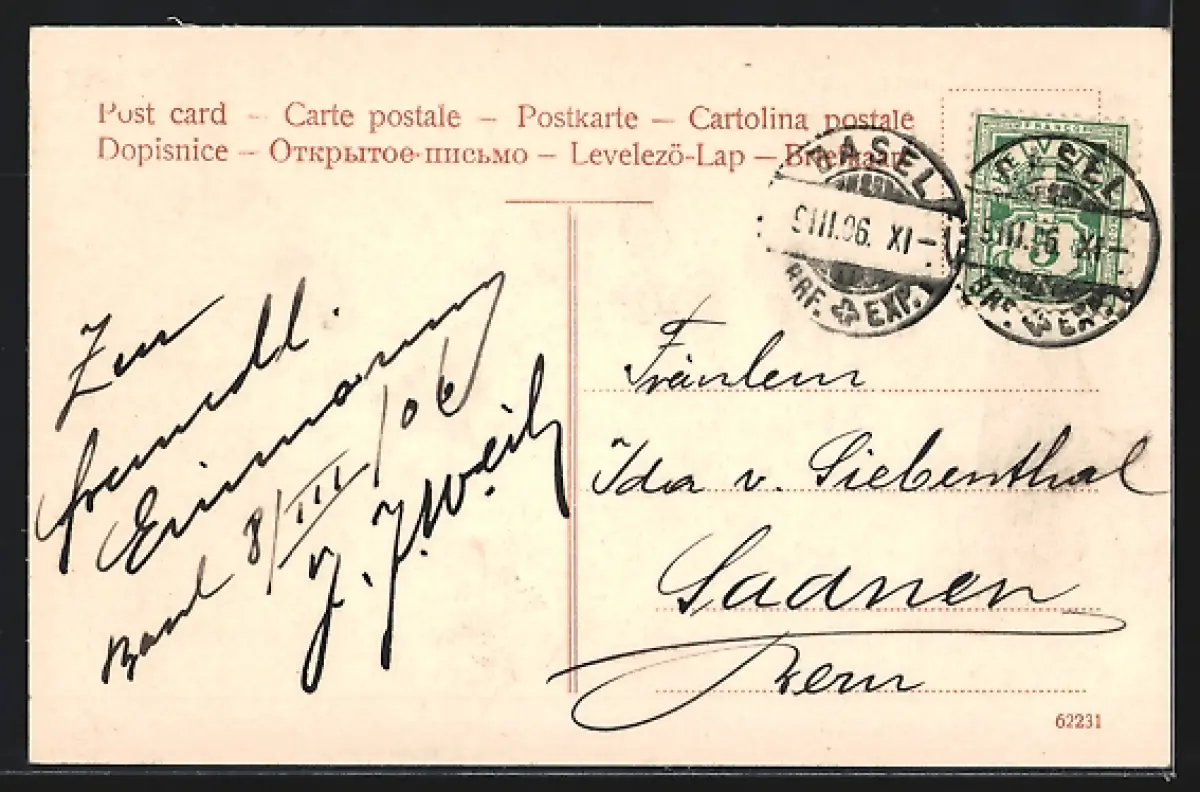 Post card – Carte postale – Postkarte – Cartolina postale
Dopisnice – Открытое письмо – Levelező-Lap – Briefkaart
BASEL
9III.06. XI–
BRF. EXP.
FRANCO
HELVETIA
5
BASEL
9III.06. XI–
BRF. EXP.
Zur
freundl.
Erinnerung
Basel 8/III/06
J. Weil
Fräulein
Ida v. Siebenthal
Saanen
Bern
62231